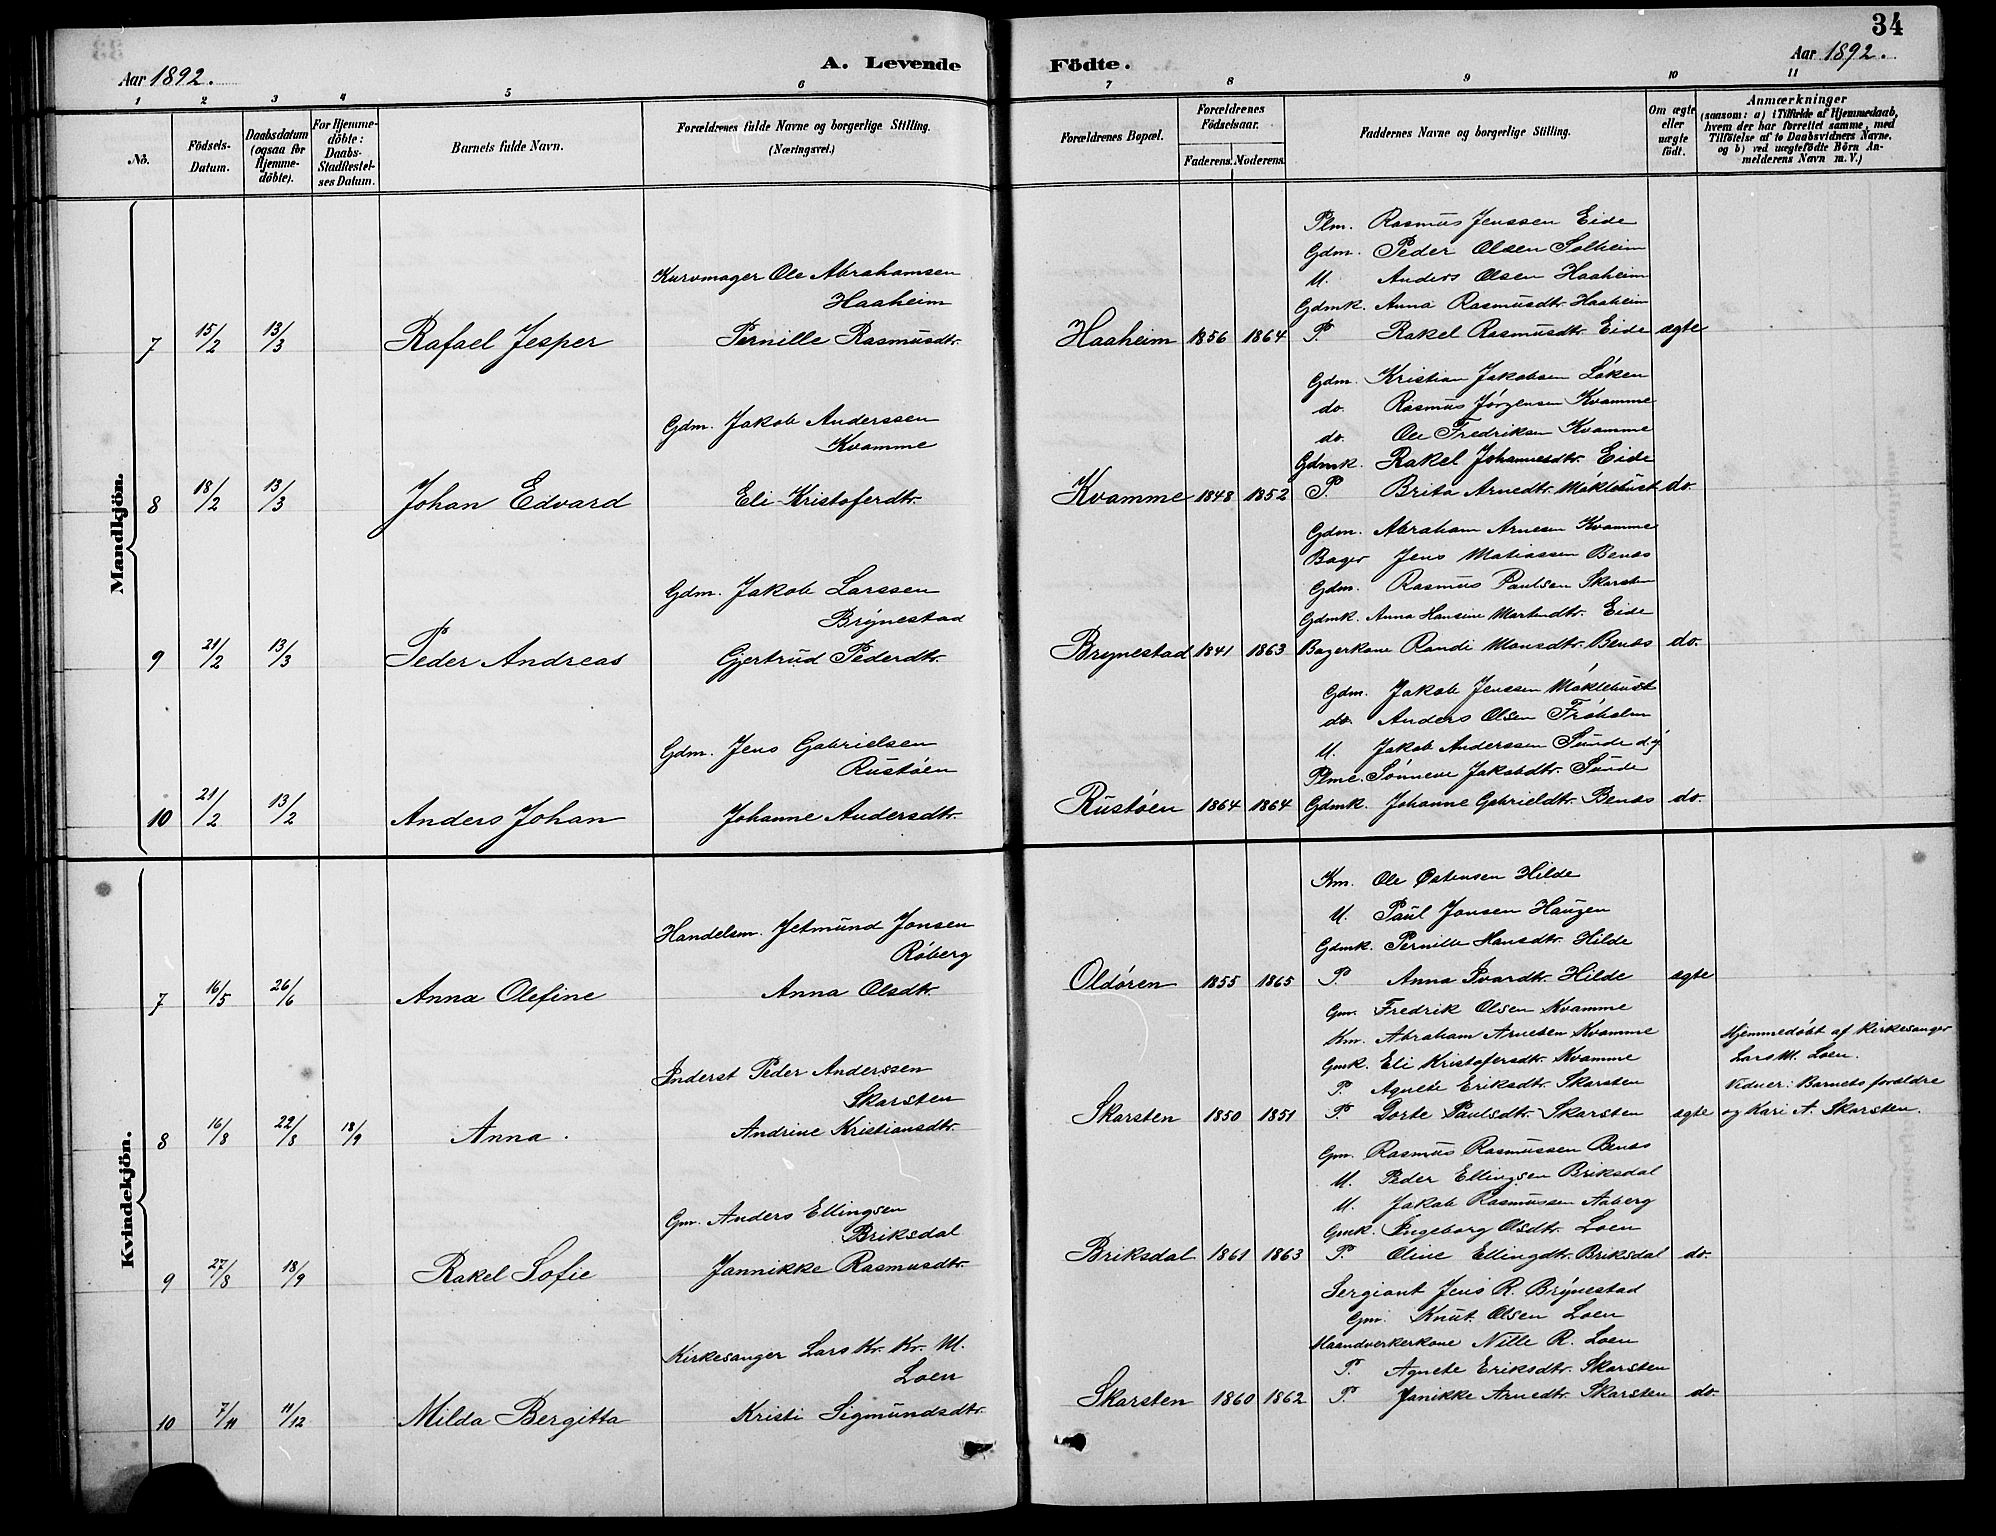 34
Aar 1892.
A. Levende Födte.
Aar 1892.
1 2 3 4 5 6 7 8 9 10 11
No.
Födsels-Datum.
Daabsdatum (ogsaa for Hjemmedöbte).
For Hjemmedöbte: Daabs-Stadfæstelses Datum.
Barnets fulde Navn.
Forældrenes fulde Navne og borgerlige Stilling.
(Næringsvei.)
Forældrenes Bopæl.
Forældrenes Födselsaar.
Faderens. Moderens.
Faddernes Navne og borgerlige Stilling.
Om ægte eller uægte födt.
Anmærkninger
(saasom: a) i Tilfælde af Hjemmedaab, hvem der har forrettet samme, med Tilföielse af to Daabsvidners Navne, og b) ved uægtefödte Börn Anmelderens Navn m. V.)
Mandkjön.
Plm. Rasmus Jenssen Eide
Gdm. Peder Olsen Solheim
Kurvmager Ole Abrahamsen
U. Anders Olsen Haaheim
Haaheim
Gdmk. Anna Rasmusdtr. Haaheim
7 15/2 13/3 Rafael Jesper Pernille Rasmusdtr. Haaheim 1856 1864 P. Rakel Rasmusdtr. Eide ægte
Gdm. Kristian Jakobsen Löken
do. Rasmus Jörgensen Kvamme
Gdm. Jakob Anderssen
Kvamme
do. Ole Fredriksen Kvamme
Gdmk. Rakel Johannesdtr. Eide
8 18/2 13/3 Johan Edvard Eli Kristoferdtr. Kvamme 1848 1852 P. Brita Arnedtr. Möklebust do.
Gdm. Abraham Arnesen Kvamme
Bager Jens Matiassen Benæs
Gdm. Jakob Larssen
Gdm. Rasmus Paulsen Skarsten
Brynestad
Gdmk. Anna Hansine Martendtr. Eide
9 21/2 13/3 Peder Andreas Gjertrud Pederdtr. Brynestad 1841 1863 Bagerkone Randi Monsdtr. Benæs do.
Gdm. Jakob Jenssen Möklebust
do. Anders Olsen Fröholm
Gdm. Jens Gabrielsen
U. Jakob Anderssen Sunde d.y.
Rustöen
Plmk. Sönneve Jakobdtr. Sunde
10 21/2 13/2 Anders Johan Johanne Andersdtr. Rustöen 1864 1864 Gdmk. Johanne Gabrieldtr. Benæs do.
Kvindekjön.
Km. Ole Östensen Hilde
U. Paul Jonsen Haugen
Handelsm. Jetmund Jonsen
Röberg
Gdmk. Pernille Hansdtr. Hilde
7 16/5 26/6 Anna Olefine Anna Olsdtr. Oldören 1855 1865 P. Anna Ivardtr. Hilde ægte
Gm. Fredrik Olsen Kvamme
Km. Abraham Arnesen Kvamme Hjemmedöbt af Kirkesanger
Gmk. Eli Kristofersdtr. Kvamme Lars M. Loen.
Inderst Peder Anderssen
P. Agnete Eriksdtr. Skarsten Vidner: Barnets forældre
Skarsten
8 16/8 22/8 18/9 Anna. Andrine Kristiansdtr. Skarsten 1850 1851 P. Dorte Paulsdtr. Skarsten ægte og Kari A. Skarsten.
Gm. Rasmus Rasmussen Benæs
U. Peder Ellingsen Briksdal
U. Jakob Rasmussen Aaberg
Gm. Anders Ellingsen
Briksdal
Gmk. Ingeborg Olsdtr. Loen
9 27/8 18/9 Rakel Sofie Jannikke Rasmusdtr. Briksdal 1861 1863 P. Oline Ellingdtr. Briksdal do.
Sergiant Jens R. Brynestad
Gm. Knut Olsen Loen
Haandverkerkone Nille R. Loen
Kirkesanger Lars Kr. Kr. M.
Loen
P. Agnete Eriksdtr. Skarsten
10 7/11 11/12 Milda Bergitta Kristi Sigmundsdtr. Skarsten 1860 1862 P. Janikke Arnedtr. Skarsten do.